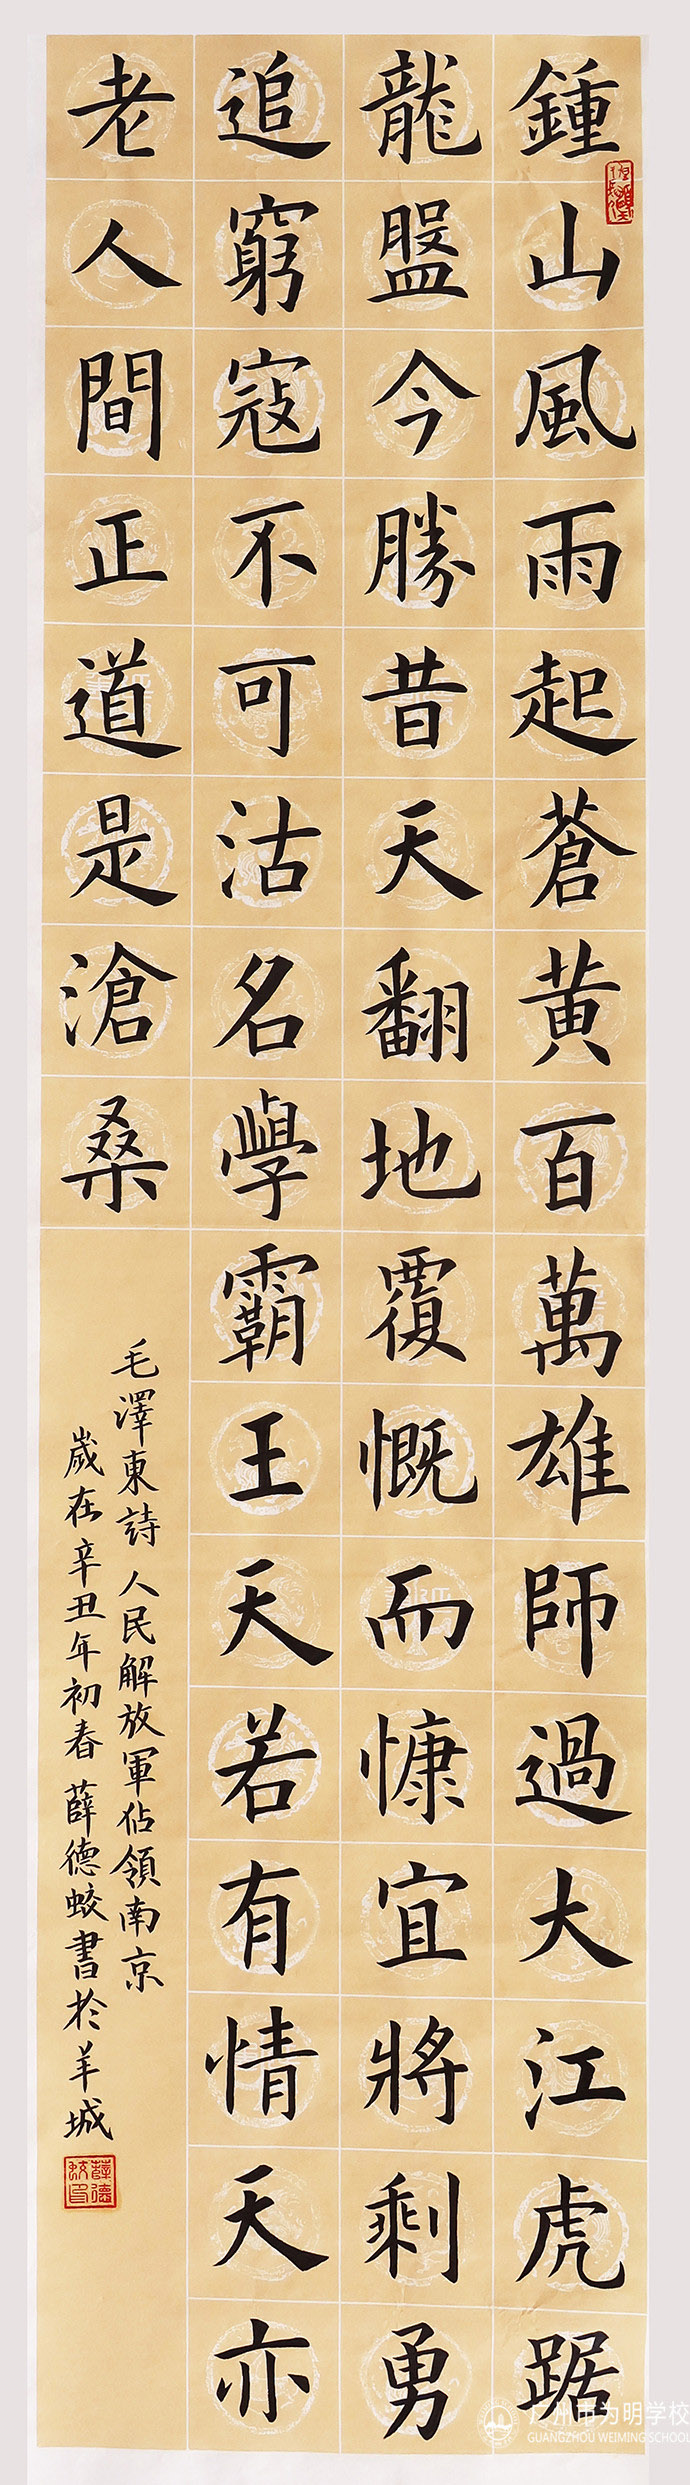 鍾山風雨起蒼黃百萬雄師過大江虎踞
龍盤今勝昔天翻地覆慨而慷宜將剩勇
追窮寇不可沽名學霸王天若有情天亦
老人間正道是滄桑
毛澤東詩人民解放軍佔領南京
歲在辛丑年初春薛德蛟書於羊城
广州市为明学校
GUANGZHOU WEIMING SCHOOL